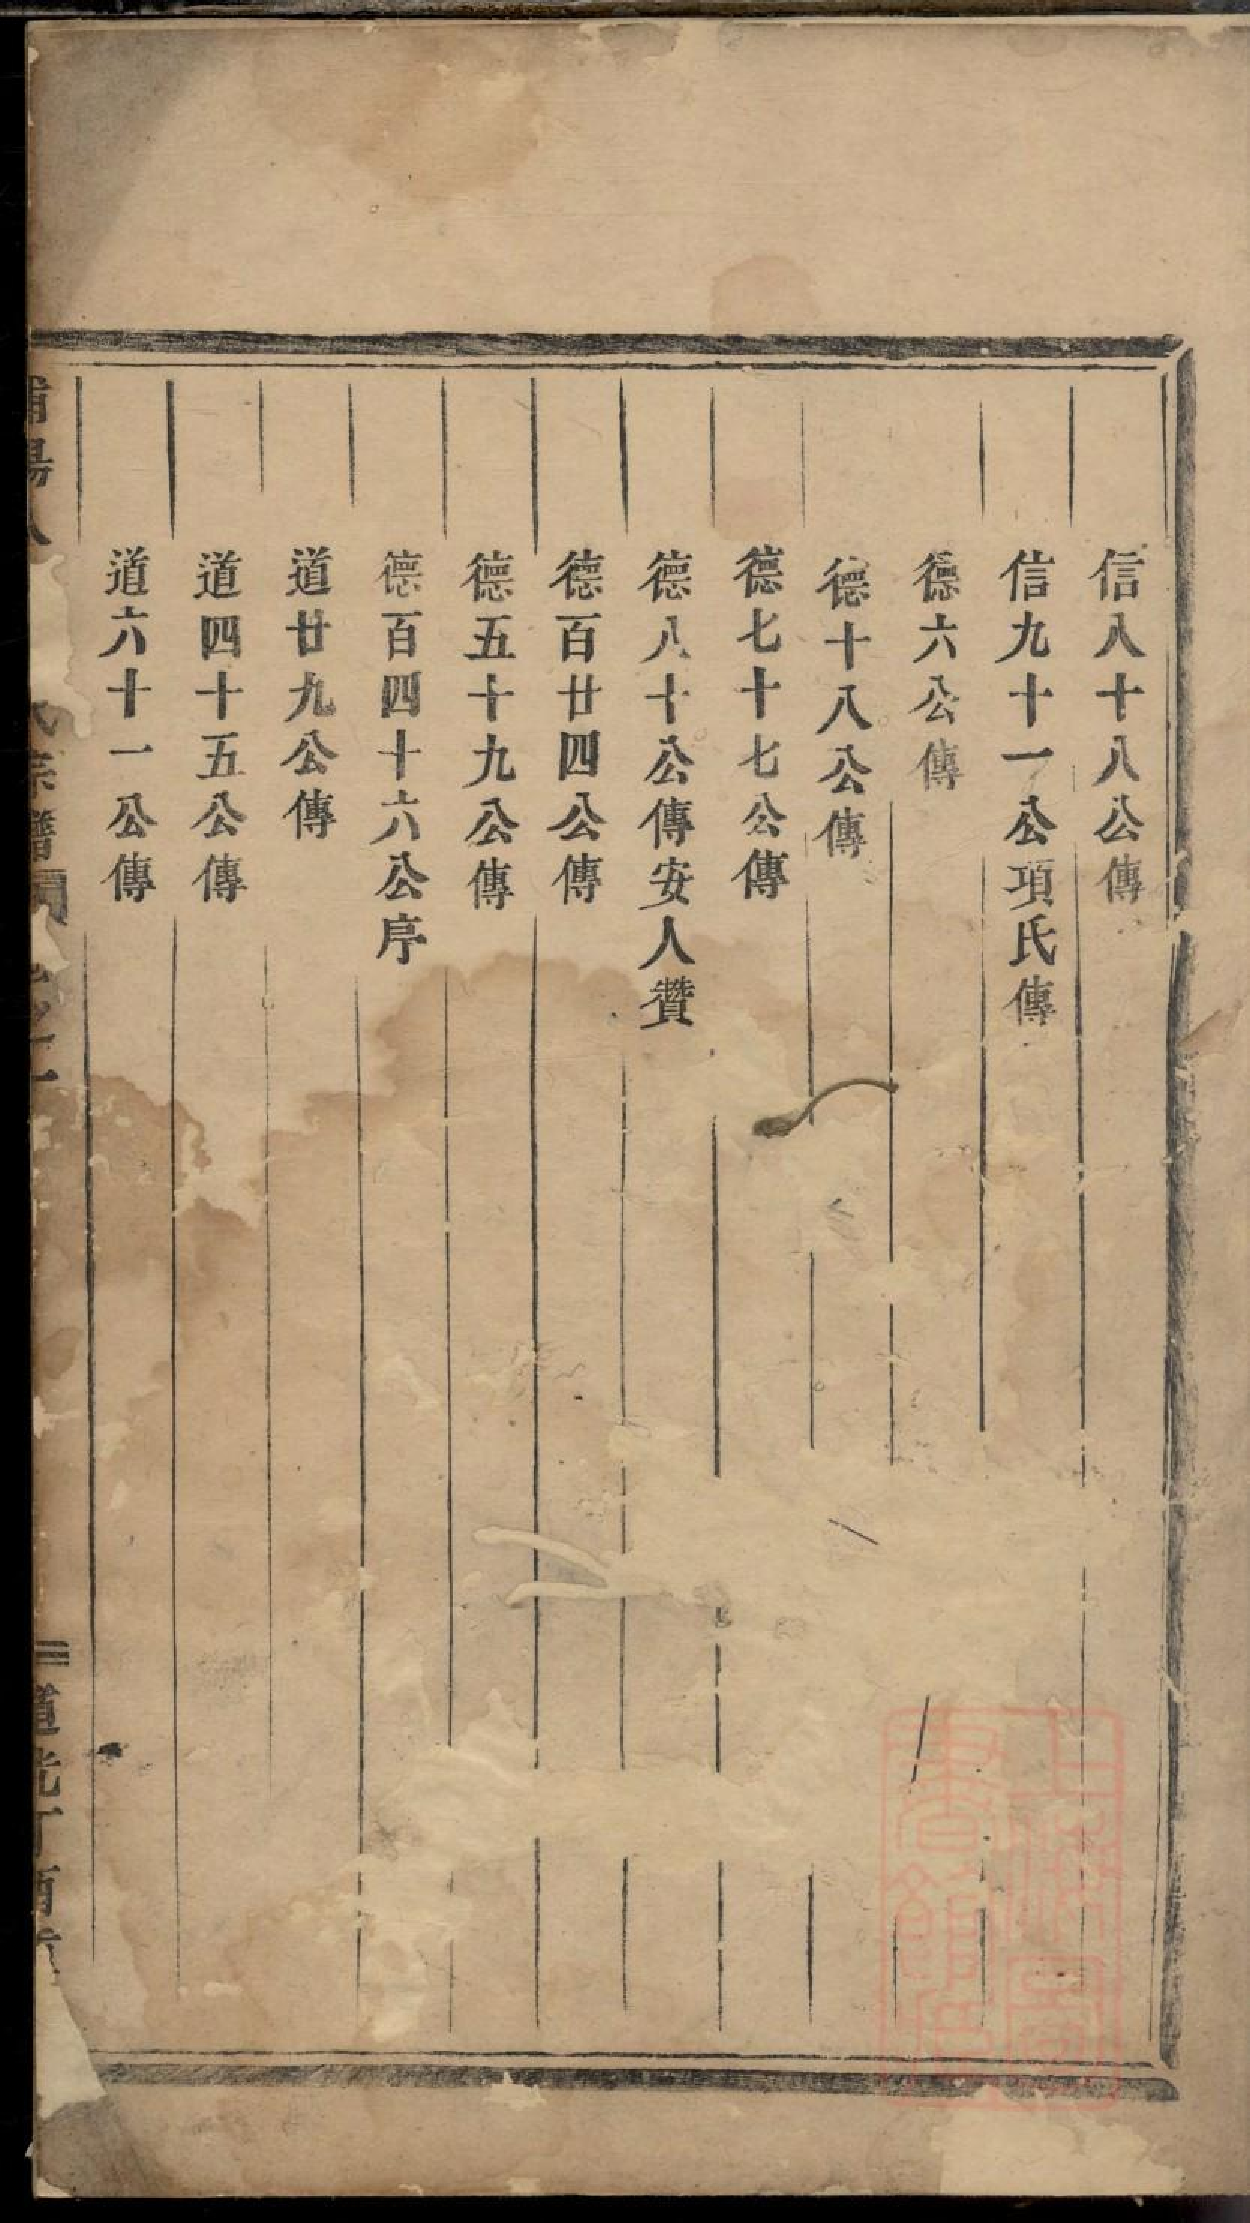 信八十八公傳
信九十一公項氏傳
德六公傳
德十八公傳
德七十七公傳
德八十公傳安人贊
德百廿四公傳
德五十九公傳
德百四十六公序
道廿九公傳
道四十五公傳
道六十一公傳
浦陽人
氏宗譜
之一
道光丁酉
上海圖書館藏